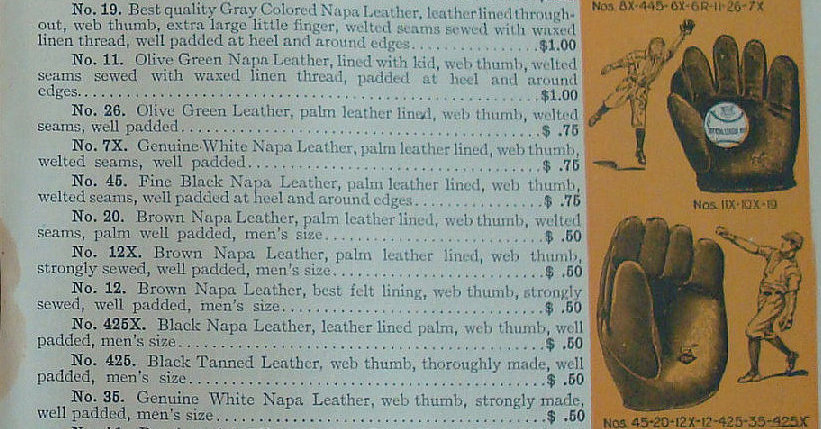 No. 19. Best quality Gray Colored Napa Leather, leather lined through-
out, web thumb, extra large little finger, welted seams sewed with waxed
linen thread, well padded at heel and around edges....................$1.00
No. 11. Olive Green Napa Leather, lined with kid, web thumb, welted
seams sewed with waxed linen thread, padded at heel and around
edges....................$1.00
No. 26. Olive Green Leather, palm leather lined, web thumb, welted
seams, well padded....................$ .75
No. 7X. Genuine White Napa Leather, palm leather lined, web thumb,
welted seams, well padded....................$ .75
No. 45. Fine Black Napa Leather, palm leather lined, web thumb,
welted seams, well padded at heel and around edges....................$ .75
No. 20. Brown Napa Leather, palm leather lined, web thumb, welted
seams, palm well padded, men's size....................$ .50
No. 12X. Brown Napa Leather, palm leather lined, web thumb,
strongly sewed, well padded, men's size....................$ .50
No. 12. Brown Napa Leather, best felt lining, web thumb, strongly
sewed, well padded, men's size....................$ .50
No. 425X. Black Napa Leather, leather lined palm, web thumb, well
padded, men's size....................$ .50
No. 425. Black Tanned Leather, web thumb, thoroughly made, well
padded, men's size....................$ .50
No. 35. Genuine White Napa Leather, web thumb, strongly made,
well padded, men's size....................$ .50
Nos. 8X-445-6X-6R-11-26-7X
Nos. 11X-10X-19
Nos. 45-20-12X-12-425-35-425X